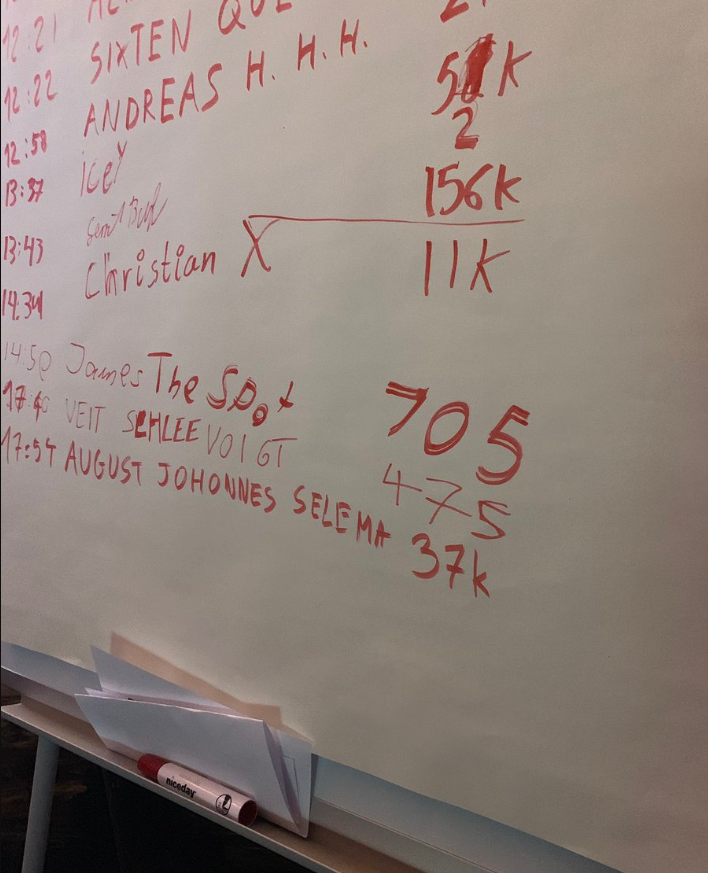 12:21 SIXTEN
12:22 ANDREAS H. H. H. 5 K
2
12:58 icey
13:37 156K
13:43 Christian X 11K
14:34
14:50 James The Spot 705
VEIT SCHLEE VOIGT 475
17:54 AUGUST JOHONNES SELEMA 37k
niceday